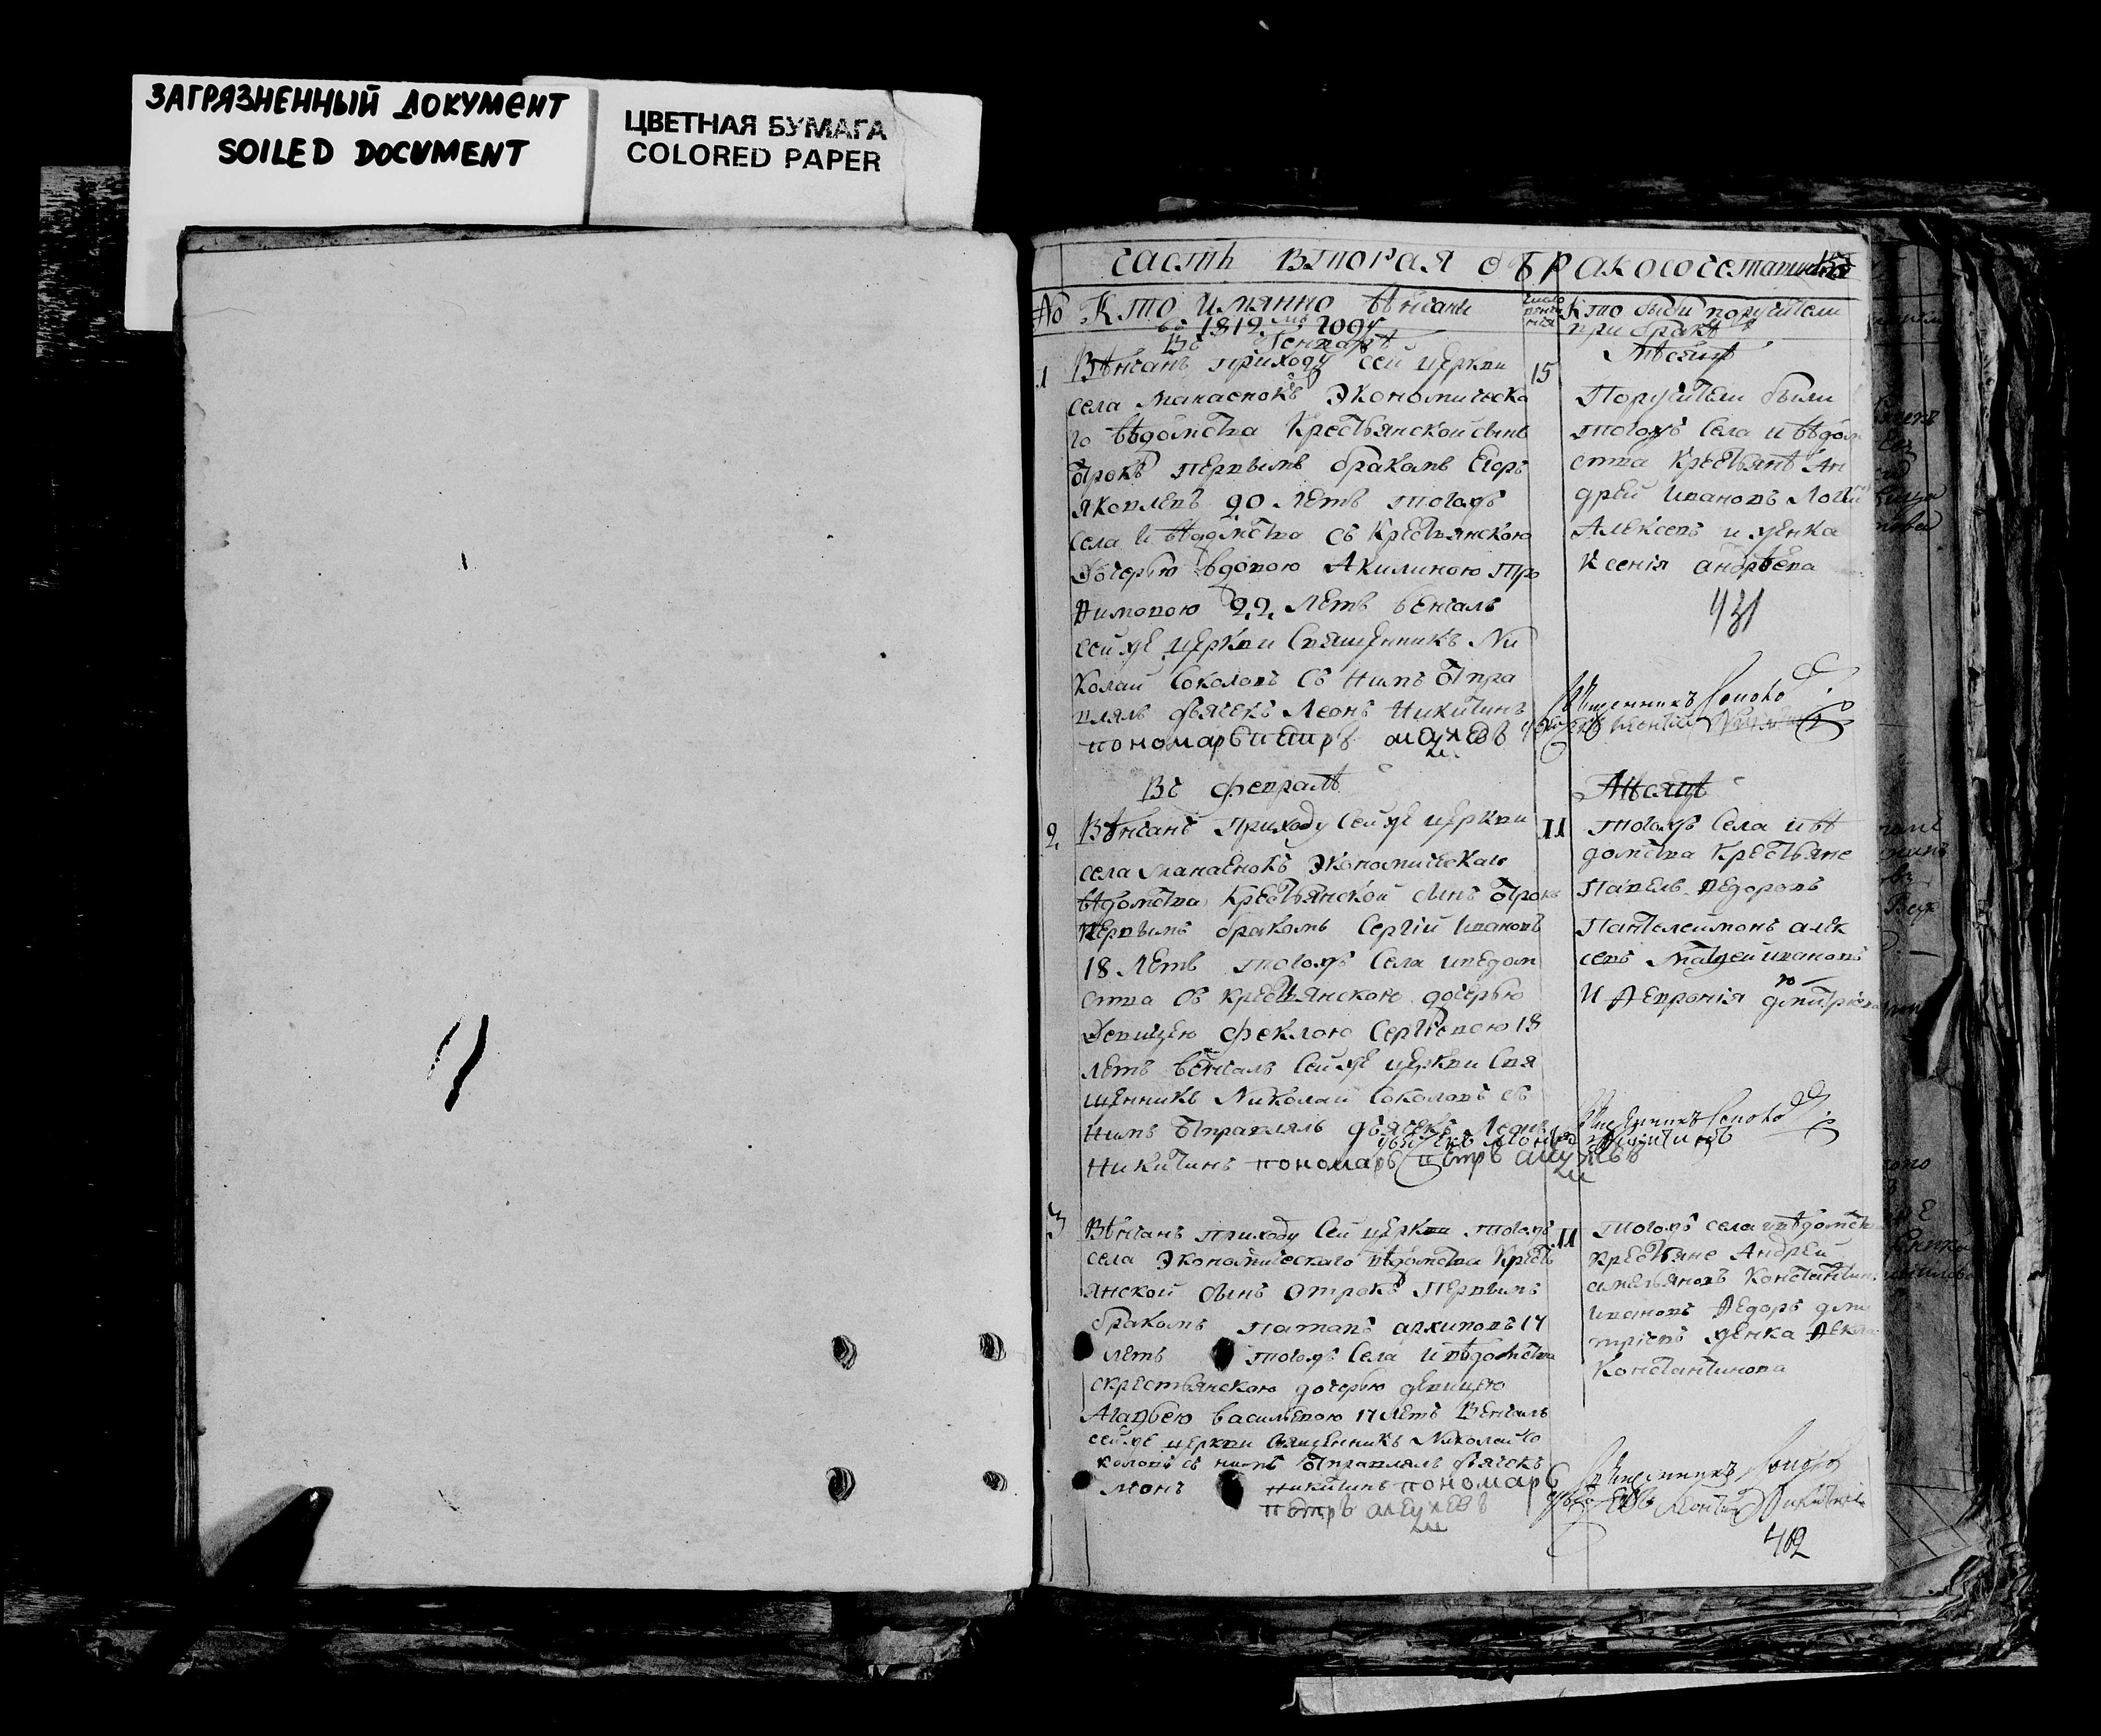 ЗАГРЯЗНЕННЫЙ ДОКУМЕНТ
SOILED DOCUMENT
ЦВЕТНАЯ БУМАГА
COLORED PAPER
часть вторая о бракосочетавшихся
№ Кто имянно вѣнчаны
въ 1819мъ году
Кто были поручители
при бракѣ
Въ Генварѣ
Мѣсяцѣ
1 Вѣнчанъ приходу сей церкви
15
села Манаенокъ Экономическа
го вѣдомства Крестьянской сынъ
отрокъ первымъ бракомъ Егоръ
Яковлевъ 20 летъ тогожъ
села и вѣдомства съ Крестьянскою
дочерью вдовою Акилиною Тро
ѳимовою 22 летъ венчалъ
сей же церкви Священникъ Ни
колай Соколовъ съ нимъ отпра
влялъ дьячекъ Леонъ Никитинъ
пономарь петръ
Поручители были
тогожъ села и вѣдом
ства Крестьянѣ Ан
дрей Ивановъ
Алексевъ и женка
Ксенія андрѣева
431
Священникъ Соколо
Въ февралѣ
Мѣсяцѣ
2 Вѣнчанъ приходу сей же церкви
11
села Манаенокъ экономическаго
вѣдомства Крестьянской сынъ отрокъ
первымъ бракомъ Сергій Ивановъ
18 летъ тогожъ села иведом
ства съ крестьянскою дочерью
девицею феклою Сергіевою 18
летъ вѣнчалъ сей же церкви Свя
щенникъ Николай Соколовъ съ
нимъ отправлялъ дьячекъ Леонъ
Никитинъ пономарь петръ
тогожъ села и вѣ
домства Крестьяне
Павелъ Ѳедоровъ
Пантелеймонъ алек
севъ Матвей ивановъ
и Ѳевронія дмитріева
Священникъ Соколо
3 Вѣнчанъ приходу Сей церкви тогожъ
11
села экономическаго вѣдомства Кресть
янской сынъ отрокъ первымъ
бракомъ Патапъ архиповъ 17
летъ тогожъ села и вѣдомства
скрестьянскою дочерью девицею
Агапѣею васильевою 17 летъ Венчалъ
сей же церкви священникъ Николай Со
коловъ съ нимъ отправлялъ дьячекъ
леонъ никитинъ пономарь
петръ
тогожъ села ивѣдомства
крестьяне Андрей
амельяновъ Константинъ
ивановъ Ѳедоръ дми
тріевъ женка Ѳекла
Константинова
Священникъ
402